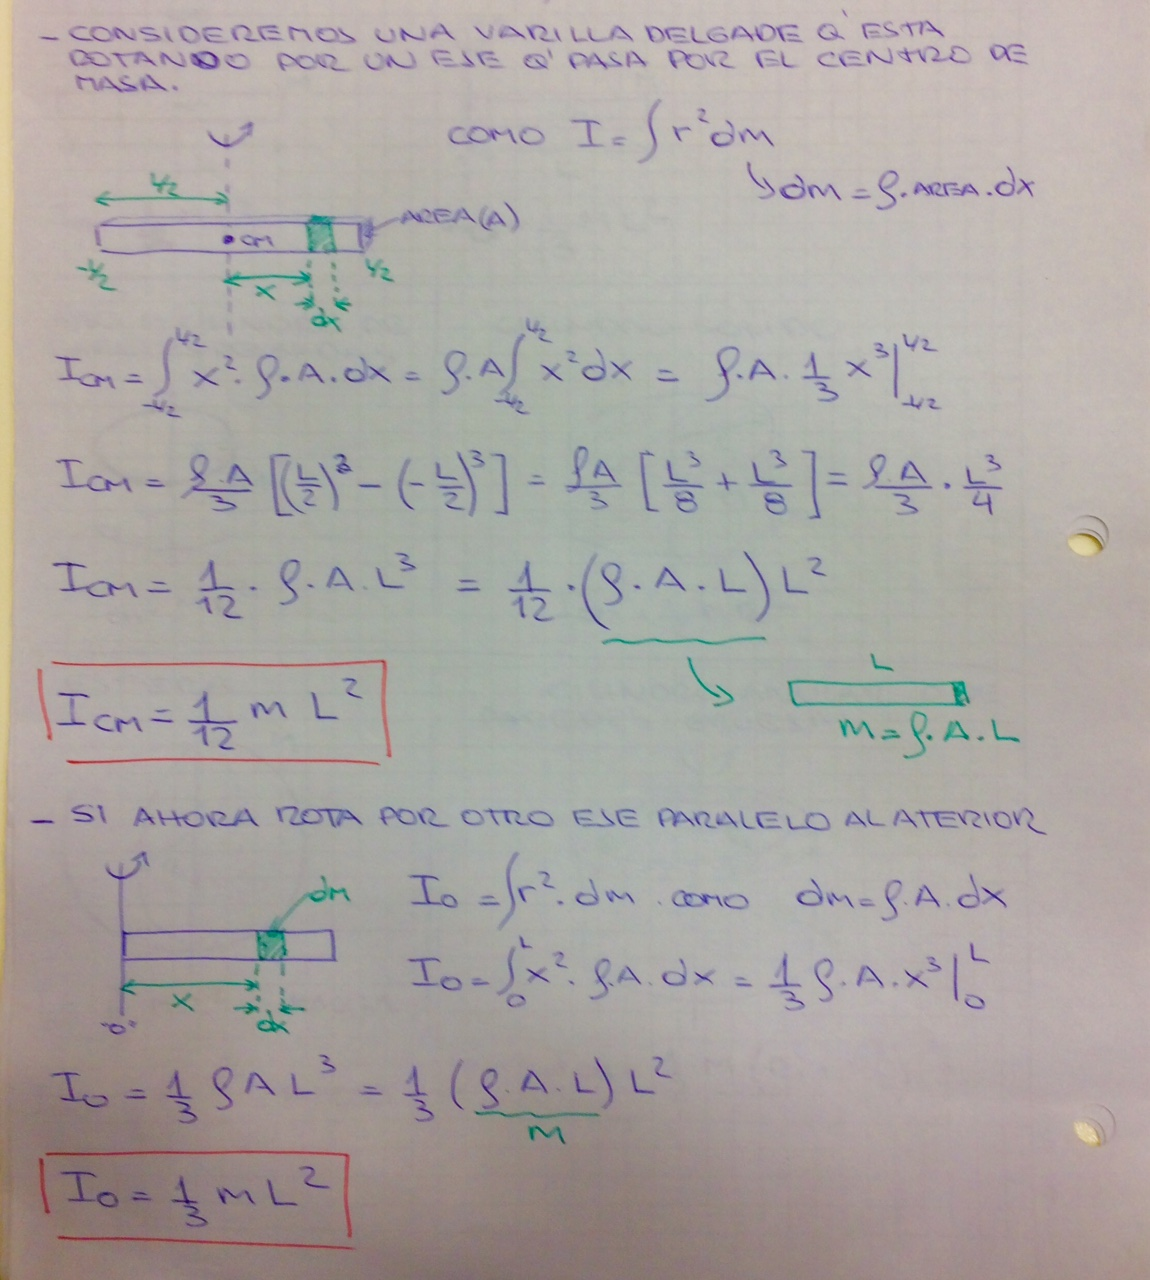 - CONSIDEREMOS UNA VARILLA DELGADE Q' ESTA
ROTANDO POR UN EJE Q' PASA POR EL CENTRO DE
MASA.
COMO I = ∫ r² dm
↳ dm = ρ. AREA. dx
L/2
AREA (A)
CM
-L/2
L/2
x
dx
I_CM = ∫_{-L/2}^{L/2} x². ρ. A. dx = ρ. A ∫_{-L/2}^{L/2} x² dx = ρ. A. 1/3 x³ |_{-L/2}^{L/2}
I_CM = ρ.A/3 [(L/2)³ - (-L/2)³] = ρA/3 [L³/8 + L³/8] = ρ.A/3 . L³/4
I_CM = 1/12 . ρ. A. L³ = 1/12 . (ρ. A. L) L²
L
I_CM = 1/12 m L²
m = ρ. A. L
- SI AHORA ROTA POR OTRO EJE PARALELO AL ATERIOR
dm
I_O = ∫ r². dm . como dm = ρ. A. dx
I_O = ∫_0^L x². ρA. dx = 1/3 ρ. A. x³ |_0^L
x
dx
"0"
I_O = 1/3 ρ A L³ = 1/3 (ρ. A. L) L²
m
I_O = 1/3 m L²